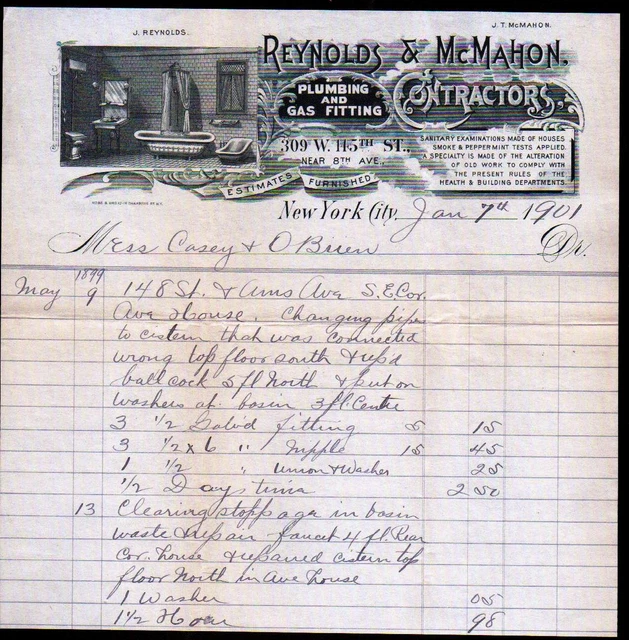 J. REYNOLDS.
J. T. McMAHON.
REYNOLDS & McMAHON.
PLUMBING
AND
GAS FITTING
CONTRACTORS.
309 W. 115TH ST.,
NEAR 8TH AVE.,
SANITARY EXAMINATIONS MADE OF HOUSES
SMOKE & PEPPERMINT TESTS APPLIED
A SPECIALTY IS MADE OF THE ALTERATION
OF OLD WORK TO COMPLY WITH
THE PRESENT RULES OF THE
HEALTH & BUILDING DEPARTMENTS
ESTIMATES FURNISHED
New York City, Jan 7th 1901
Mess Casey & O Brien Dr.
1899
May 9 148 St. & Ams Ave S.E Cor.
Ave House. Changing pipe
to cistern that was connected
wrong top floor south & rep'd
ball cock 5 fl North & put on
washers at basin 3 fl. Centre
3 1/2 Galv'd fitting 5 15
3 1/2 x 6 " Nipple 15 45
1 1/2 " union & Washer 25
1/2 Days time 2 50
13 Clearing stoppage in basin
waste & repair faucet 4 fl. Rear
Cor. house & repaired cistern top
floor North in Ave house
1 Washer 05
1 1/2 Hour 98